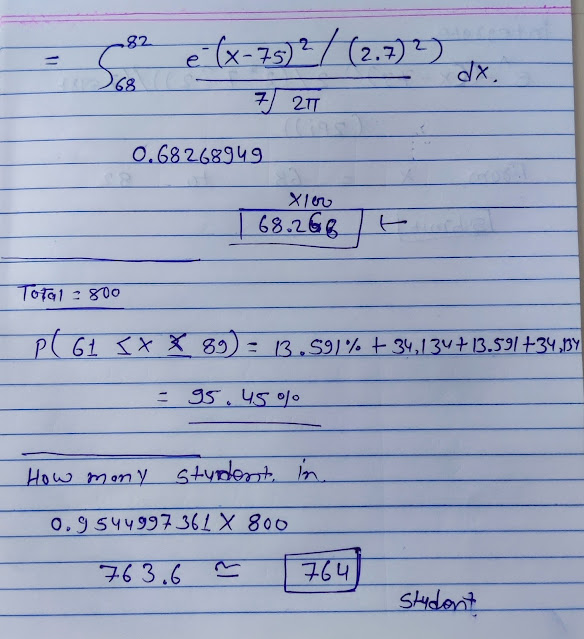 = ∫₆₈⁸² e⁻(x-75)²/(2.7)²) / 7√2π dx.
0.68268949
x100
68.268 ←
Total = 800
P( 61 ≤ x ≤ 89) = 13.591% + 34,134 + 13.591 + 34,134
= 95.45%
How many student in
0.9544997361 X 800
763.6 ≃ 764
student